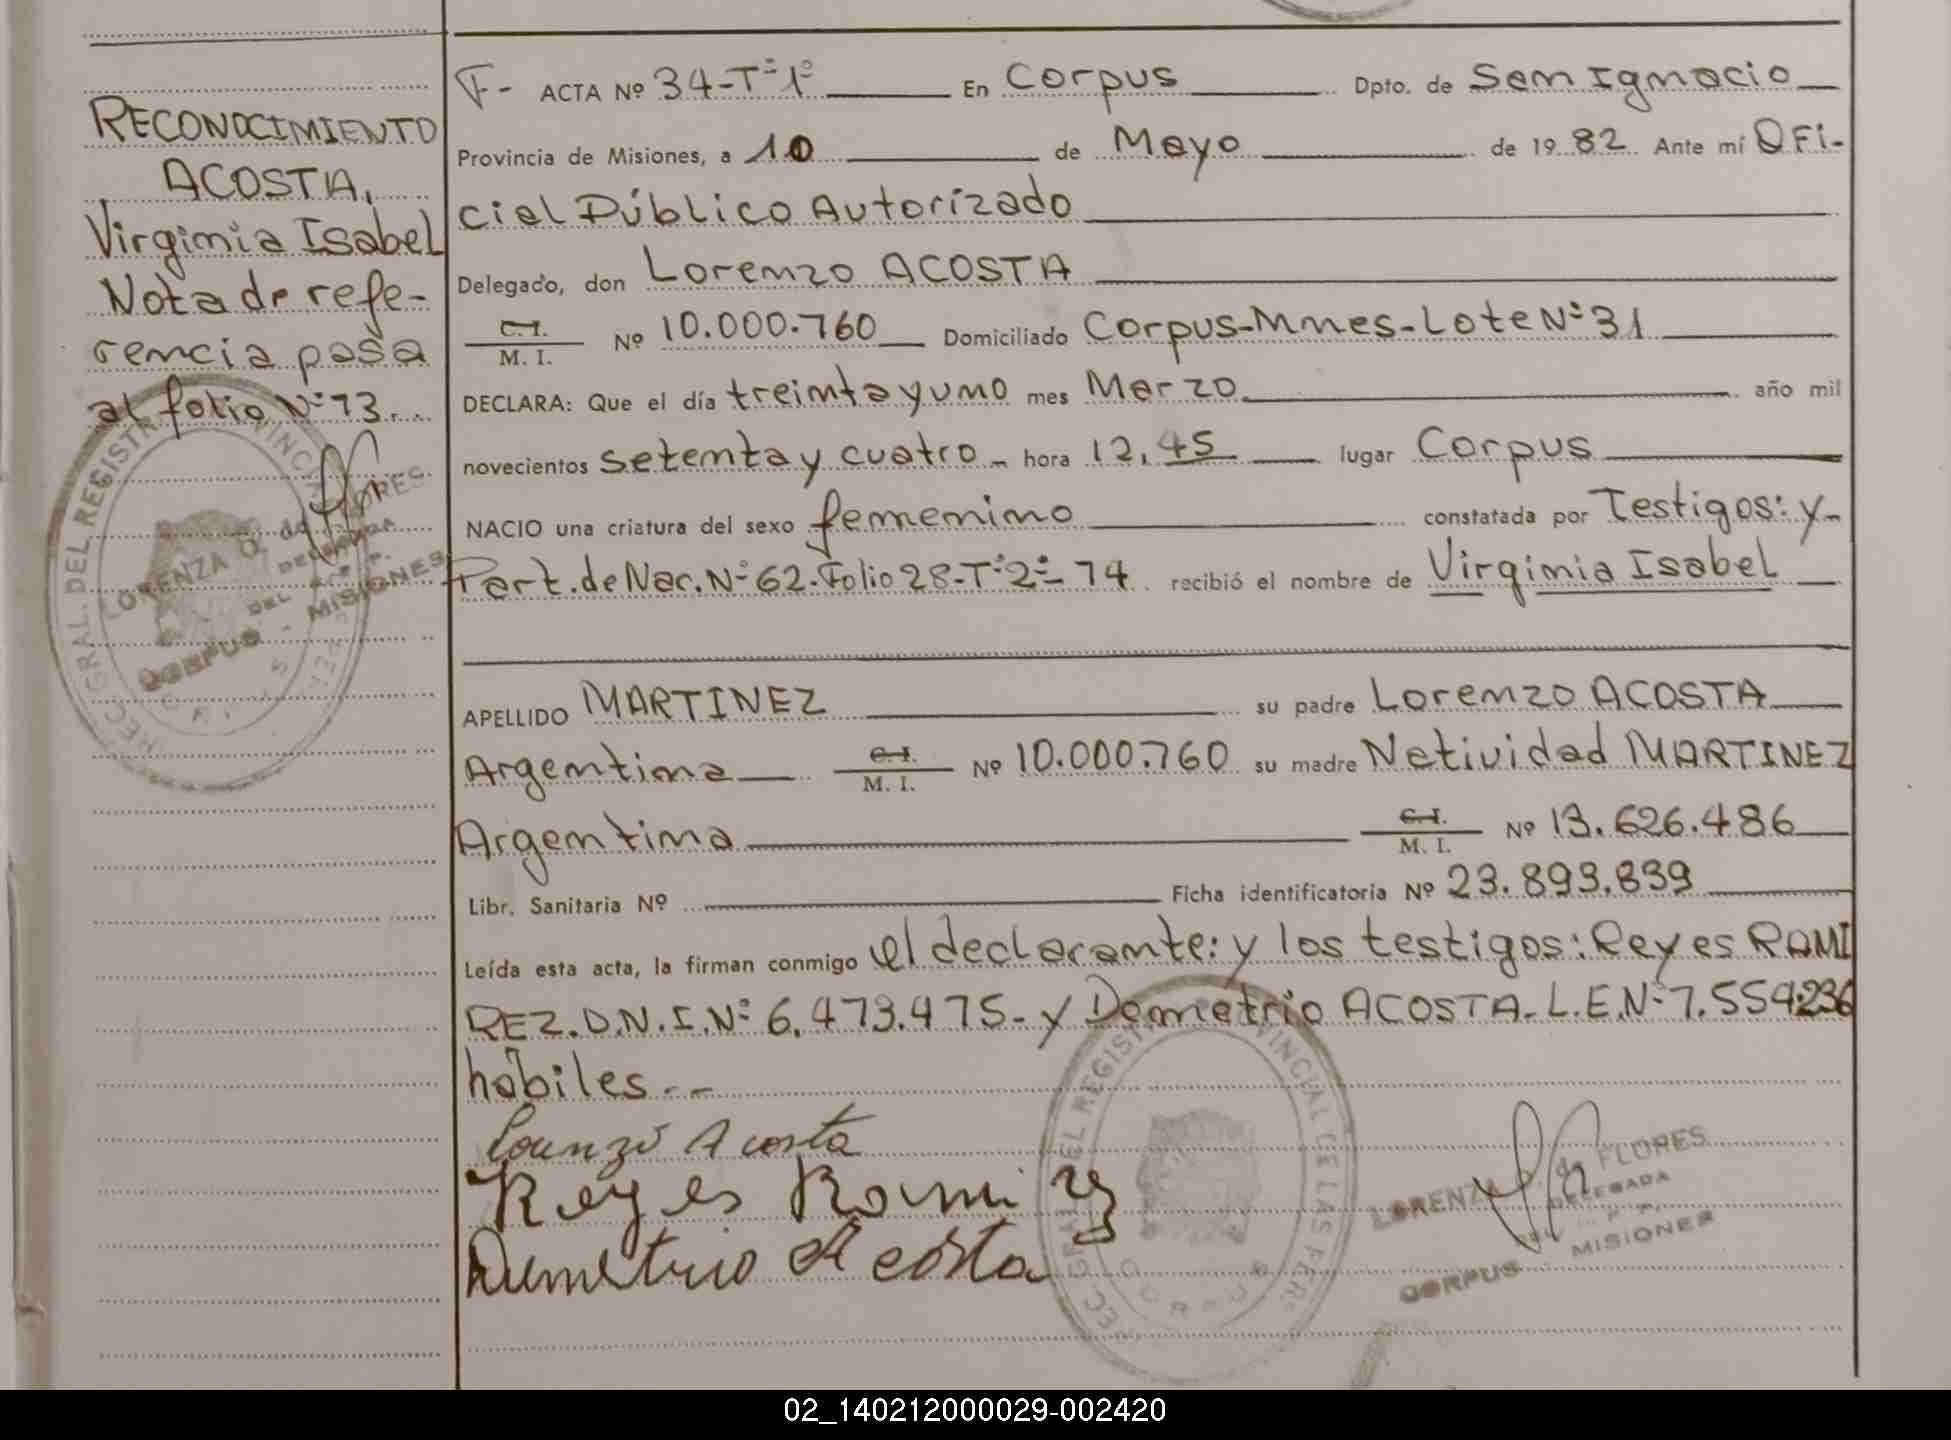 RECONOCIMIENTO
ACOSTA,
Virginia Isabel
Nota de refe-
rencia pasa
al folio Nº 73.
LORENZA O. de FLORES
DELEGADA
DEL R.P.P.
CORPUS - MISIONES
F- ACTA Nº 34-Tº1º En Corpus Dpto. de San Ignacio
Provincia de Misiones, a 10 de Mayo de 1982 Ante mí Ofi-
cial Público Autorizado
Delegado, don Lorenzo ACOSTA
C.I.
M. I. Nº 10.000.760 Domiciliado Corpus-Mnes-Lote Nº 31
DECLARA: Que el día treinta y uno mes Marzo año mil
novecientos setenta y cuatro hora 12,45 lugar Corpus
NACIO una criatura del sexo femenino constatada por Testigos: y-
Part. de Nac. Nº 62-Folio 28-Tº2º-74 recibió el nombre de Virginia Isabel
APELLIDO MARTINEZ su padre Lorenzo ACOSTA
Argentina C.I. M. I. Nº 10.000.760 su madre Natividad MARTINEZ
Argentina C.I. M. I. Nº 13.626.486
Libr. Sanitaria Nº Ficha identificatoria Nº 23.893.839
Leída esta acta, la firman conmigo el declarante: y los testigos: Reyes RAMI
REZ. D.N.I. Nº 6.473.475- y Demetrio ACOSTA- L.E.Nº 7.554.236
habiles.--
Lorenzo Acosta
Reyes Ramirez
Demetrio Acosta
LORENZA de FLORES
DELEGADA
CORPUS MISIONES
02_140212000029-002420